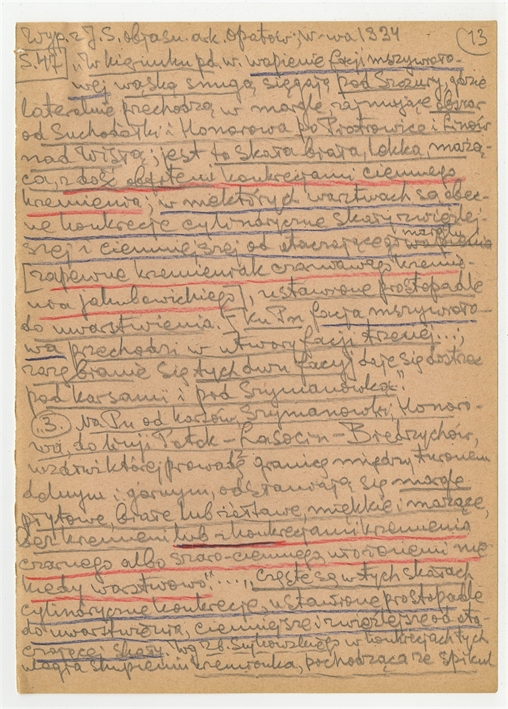 Wyp. z J. S. objaśn. ark. Opatów; W-wa 1934
13
S. 47] „W kierunku pd. w. wapienie facji mszywioło-
wej wąską smugą sięgają pod Szczury, gdzie
lateralnie przechodzą w margle zajmujące obszar
od Suchodółki i Honorowa po Piotrowice i Linów
nad Wisłą; jest to skała biała, lekka, mażą-
ca, z dość obfitemi konkrecjami ciemnego
krzemienia; w niektórych warstwach są obec-
ne konkrecje cylindryczne skały zwięźlej-
szej i ciemniejszej od otaczającego margla
[zapewne krzemieniak czerwonego krzemie-
nia jakubowickiego], ustawione prostopadle
do uwarstwienia. Ku Pn facja mszywioło-
wa przechodzi w utwory facji innej...;
zazębianie się tych dwu facyj daje się dostrzec
pod Karsami i pod Szymanówką."
„3. Na Pn od Karsów, Szymanówki, Honoro-
wa, do linji Potok – Lasocin – Biedrzychów,
wzdłuż której prowadzę granicę między turonem
dolnym i górnym, odsłaniają się margle
płytowe, białe lub żółtawe, miękkie i mażące,
bez krzemieni lub z konkrecjami krzemienia
czarnego albo szaro-ciemnego ułożonemi nie
kiedy warstwowo"... „Częste są w tych skałach
cylindryczne konkrecje, ustawione prostopadle
do uwarstwienia, ciemniejsze i zwięźlejsze od ota-
czającej skały. Wg Zb. Sujkowskiego w konkrecjach tych
ulega skupieniu krzemionka, pochodząca ze spikul